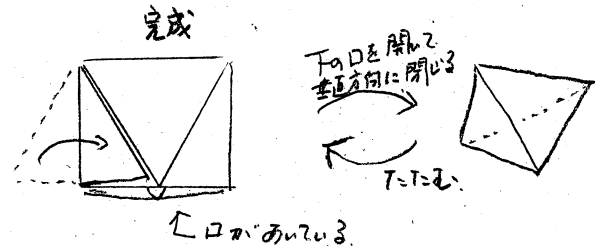 完成
下の口を開いて
垂直方向に閉じる
たたむ
口があいている